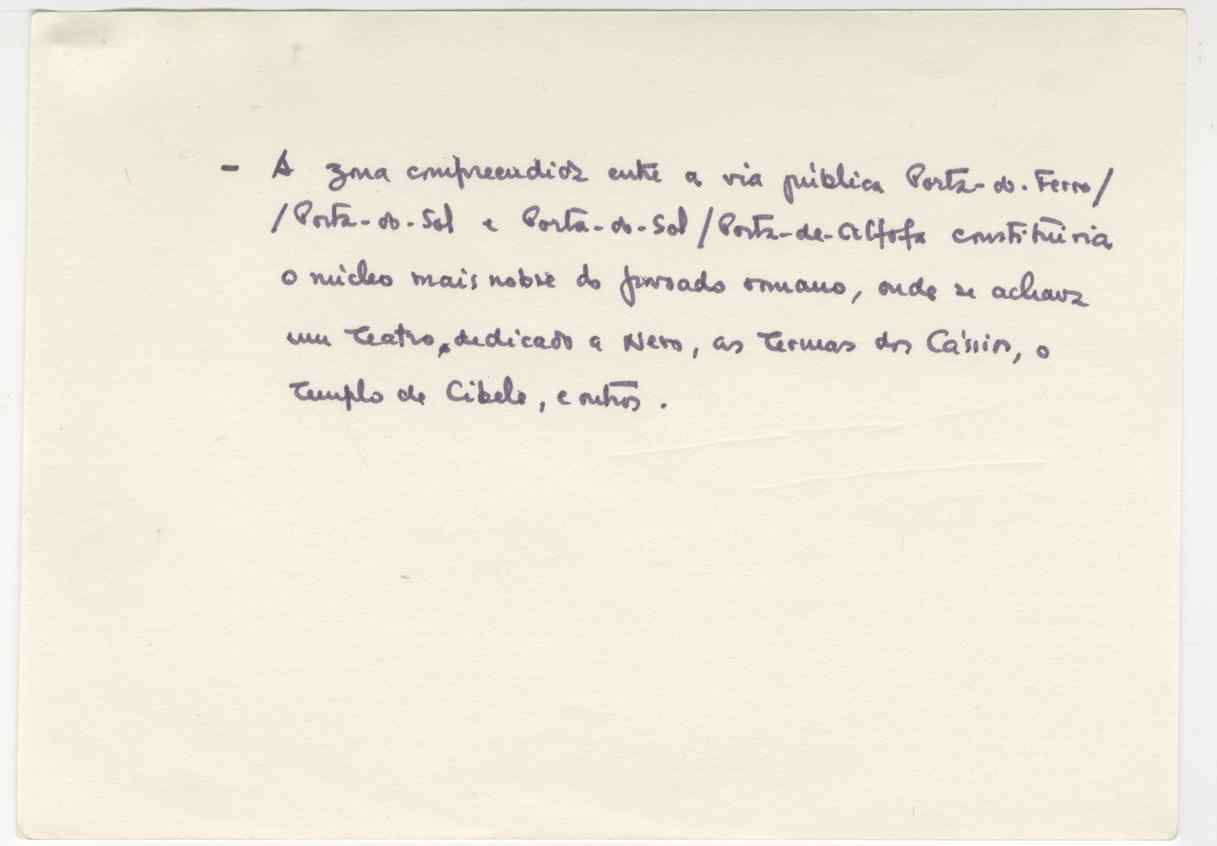 - A zona compreendida entre a via pública Porta-do-Ferro/
/Porta-do-Sol e Porta-do-Sol/Porta-de-Alfofa constituiria
o núcleo mais nobre do povoado romano, onde se achava
um Teatro, dedicado a Nero, as Termas dos Cássios, o
Templo de Cibele, e outros.